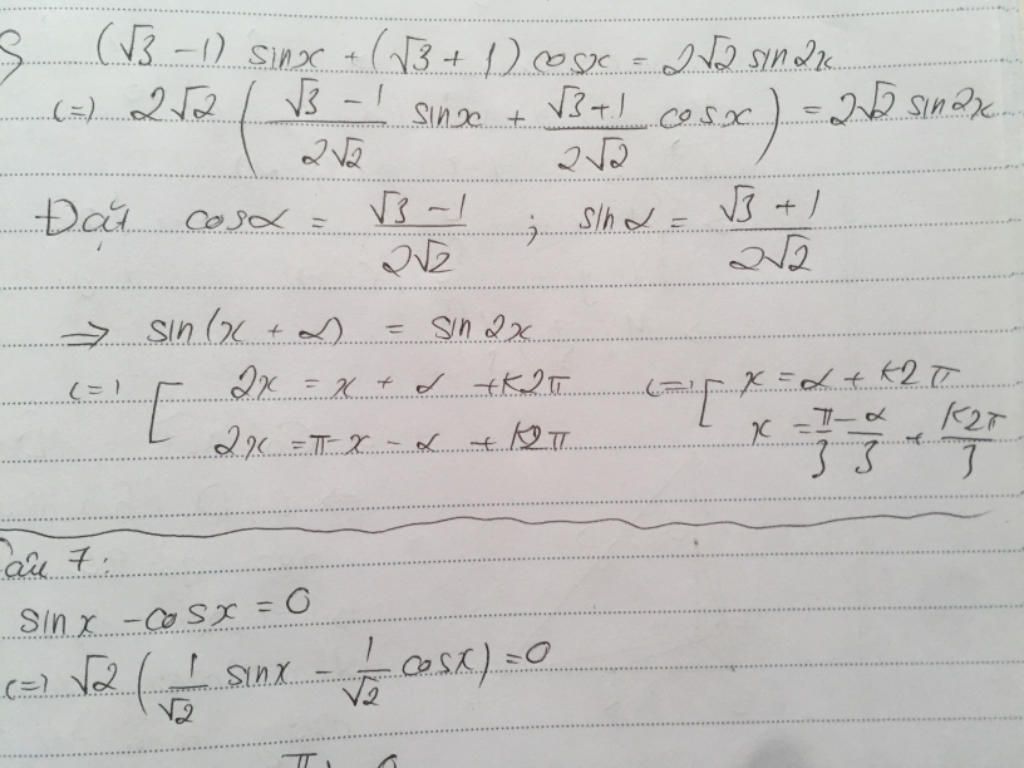 (√3 - 1) sinx + (√3 + 1) cosx = 2√2 sin2x
(=) 2√2 ( (√3 - 1)/(2√2) sinx + (√3+1)/(2√2) cosx ) = 2√2 sin2x
Đặt cosα = (√3 - 1)/(2√2) ; sinα = (√3 + 1)/(2√2)
⇒ sin(x + α) = sin2x
(=) [ 2x = x + α + k2π (=) [ x = α + k2π
2x = π - x - α + k2π x = π/3 - α/3 + k2π/3
Câu 7:
sinx - cosx = 0
(=) √2 ( 1/√2 sinx - 1/√2 cosx ) = 0